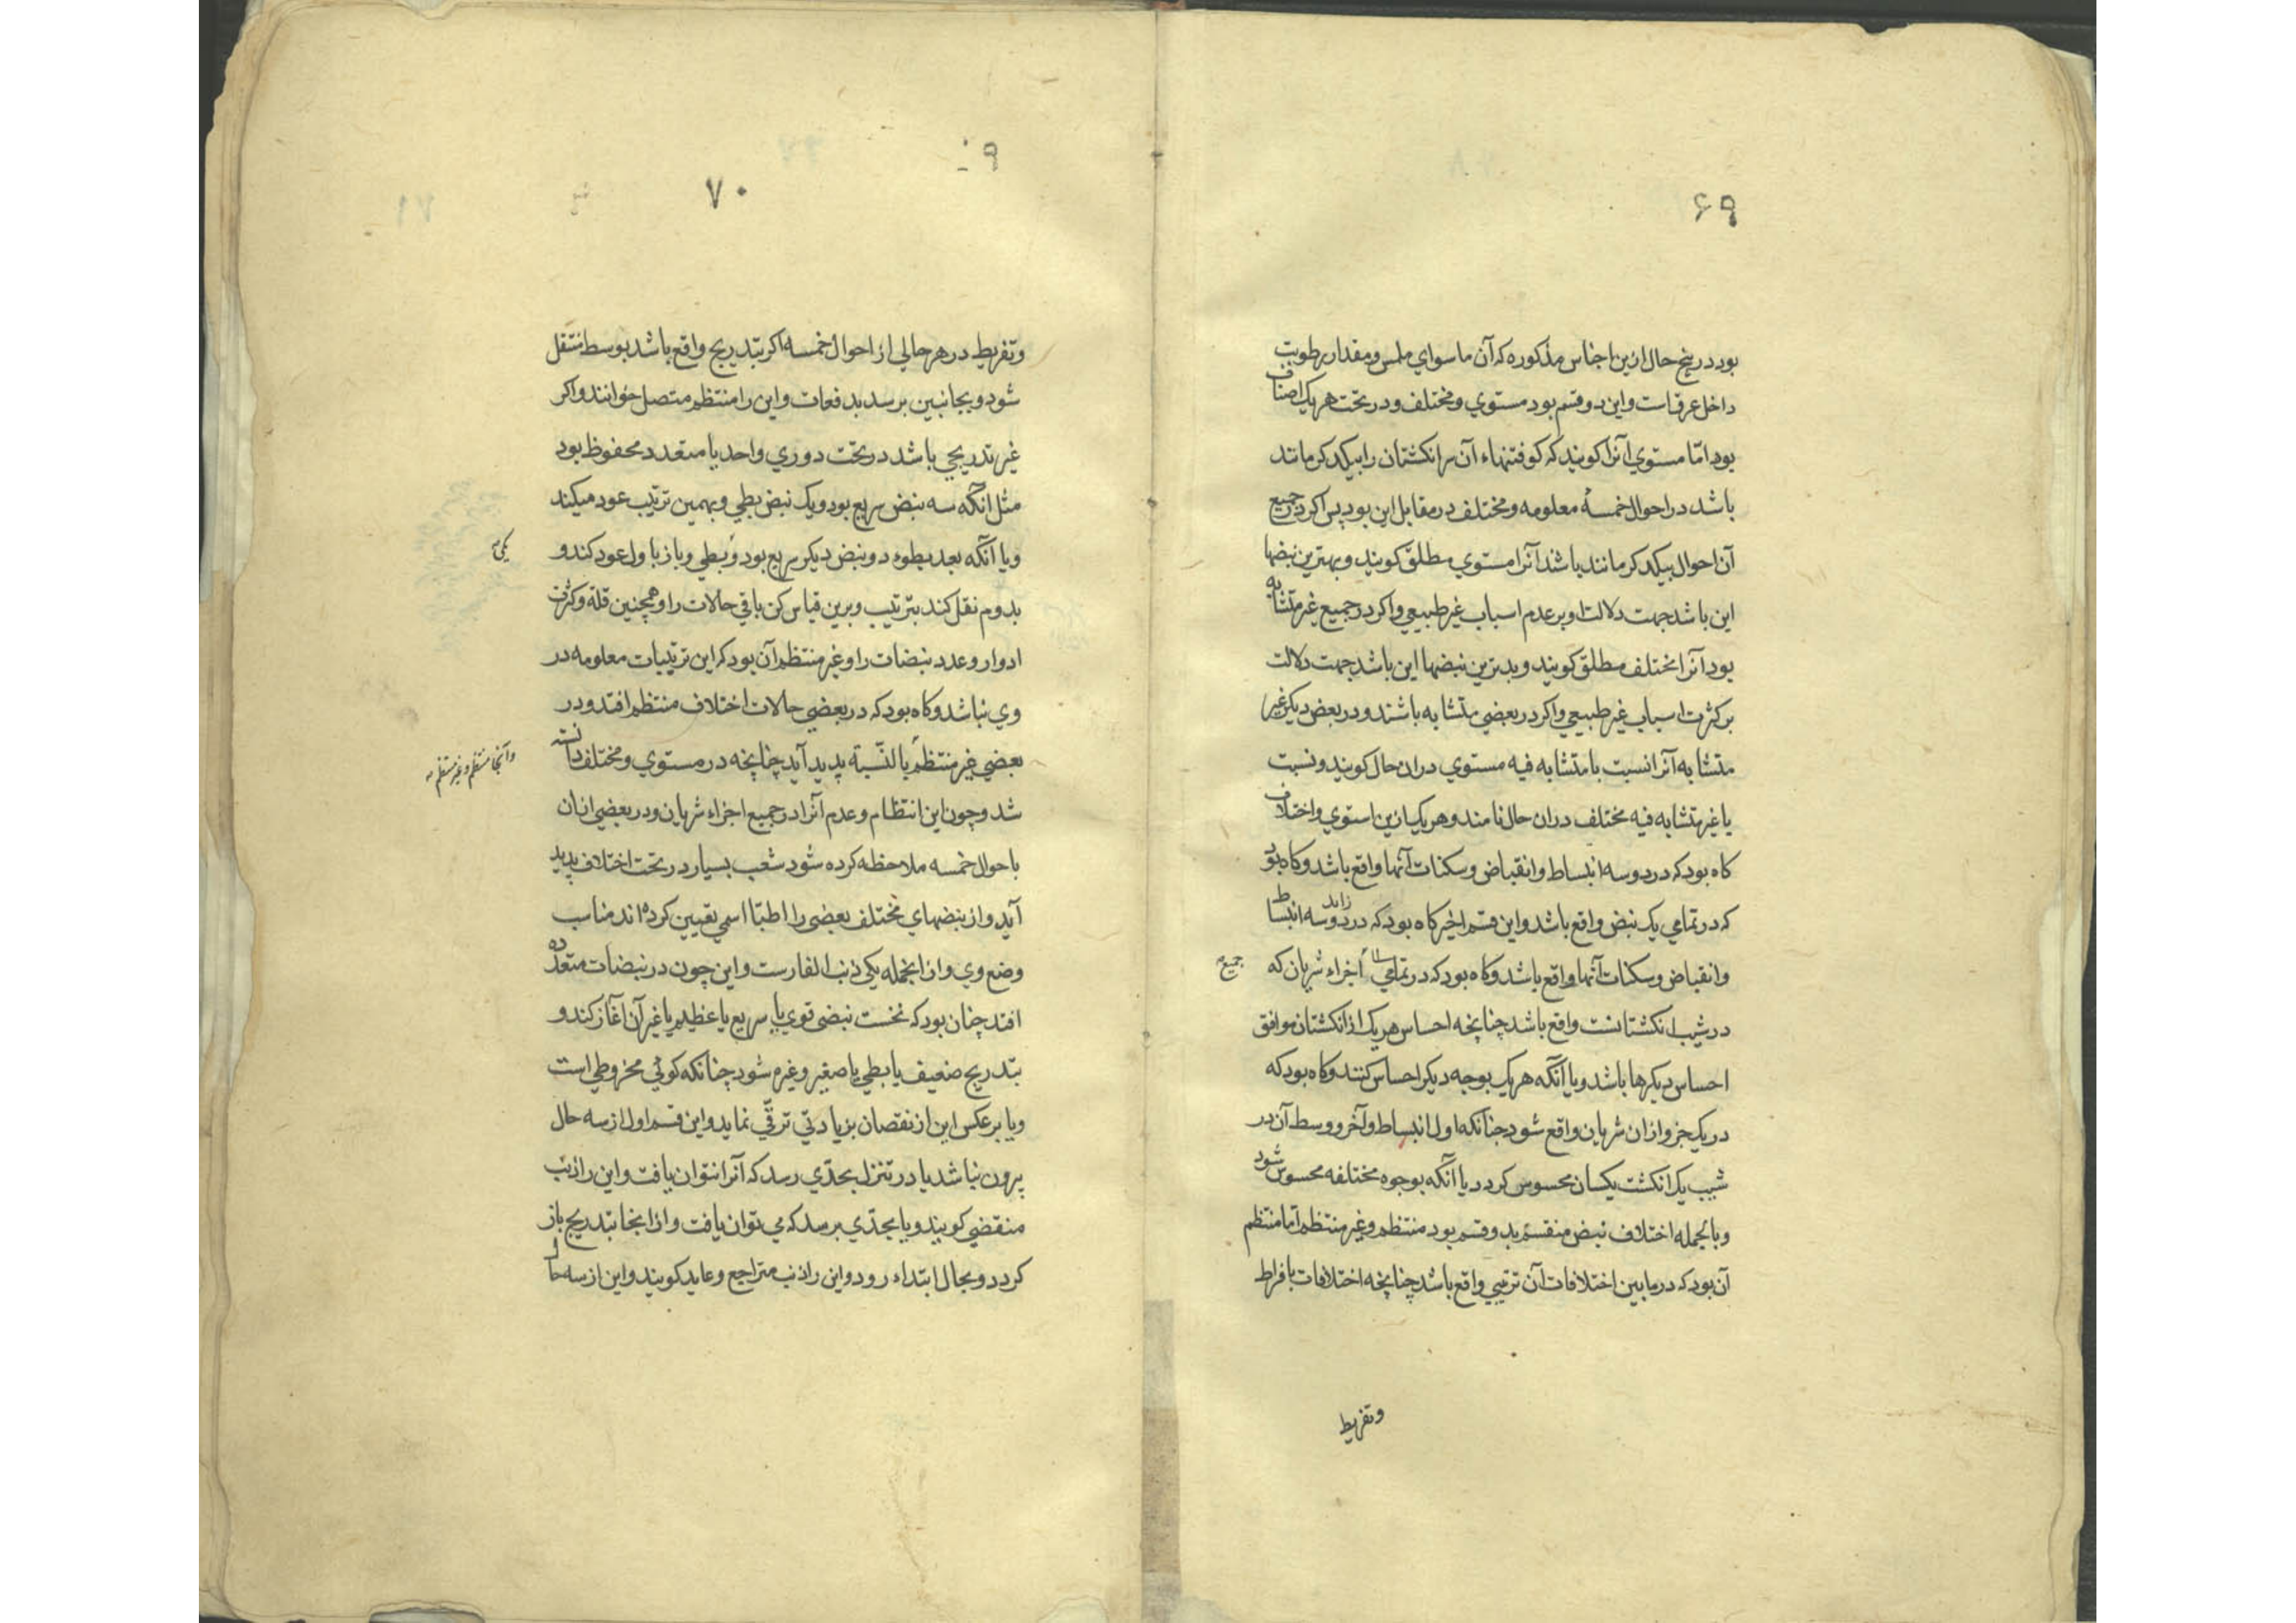 ۶۹
بود در پنج حال ازین اجناس مذکوره که آن ماسوای ملمس و مقدار رطوبت
داخل عرق است و این دو قسم بود مستوی و مختلف و در تحت هر یک اصناف
بود امّا مستوی آنرا کویند که کوفتنهاء آن سر انکشتان را بیکدکر مانند
باشد در احوال خمسهٔ معلومه و مختلف در مقابل این بود پس اکر در جمیع
آن احوال بیکدکر مانند باشد آنرا مستوی مطلق کویند و بهترین نبضها
این باشد جهت دلالت او بر عدم اسباب غیر طبیعی و اکر در جمیع غیر متشابه
بود آنرا مختلف مطلق کویند و بدترین نبضها این باشد جهت دلالت
بر کثرت اسباب غیر طبیعی و اکر در بعضی متشابه باشند و در بعض دیکر غیر
متشابه آنرا نسبت با متشابه فیه مستوی دران حال کویند و نسبت
با غیر متشابه فیه مختلف دران حال نامند و هر یک ازین استوی و اختلاف
کاه بود که در دو سه انبساط و انقباض و سکنات آنها واقع باشد و کاه بود
که در تمامی یک نبض واقع باشد و این قسم اخیر کاه بود که در دو سه انبساط
وانقباض و سکنات آنها واقع باشد و کاه بود که در تمامی اجزاء شریان که
جمیع
در شیب انکشتانست واقع باشد چنانچه احساس هر یک از انکشتان موافق
احساس دیکرها باشد و یا آنکه هر یک بوجه دیکر احساس کنند و کاه بود که
در یک جزو ازان شریان واقع شود چنانکه اول انبساط و آخر و وسط آن در
شیب یک انکشت یکسان محسوس کردد یا آنکه بوجوه مختلفه محسوس شود
و بالجمله اختلاف نبض منقسم بدو قسم بود منتظم و غیر منتظم امّا منتظم
آن بود که در ما بین اختلافات آن ترتیبی واقع باشد چنانچه اختلافات با فراط
وتفریط
۷۰
وتفریط در هر حالی از احوال خمسه اکر بتدریج واقع باشد بوسط منتقل
شود و بجانبین برسد بدفعات و این را منتظم متصل خوانند و اکر
غیر تدریجی باشد در تحت دوری واحد یا متعدد محفوظ بود
مثل انکه سه نبض سریع بود و یک نبض بطی و بهمین ترتیب عود میکند
و یا آنکه بعد بطوء دو نبض دیکر سریع بود و بطی و باز باول عود کند و
یکی
بدوم نقل کند بترتیب و برین قیاس کن باقی حالات را و همچنین قلة و کثرت
ادوار و عدد نبضات را و غیر منتظم آن بود که این ترتیبات معلومه در
وی نباشد و کاه بود که در بعضی حالات اختلاف منتظم افتد و در
بعضی غیر منتظم بالنّسبة پدید آید چنانچه در مستوی و مختلف دانسته
وآنجا منتظم و غیر منتظم
شد و چون این انتظام و عدم آنرا در جمیع اجزاء شریان و در بعضی ازان
با حوال خمسه ملاحظه کرده شود شعب بسیار در تحت اختلاف پدید
آید و از نبضهای مختلف بعضی را اطبّا اسمی تعیین کرده اند مناسب
وضع وی و ازانجمله یکی ذنب الفارست و این چون در نبضات متعدّده
افتد چنان بود که نخست نبضی قوی یا سریع یا عظیم یا غیر آن آغاز کند و
بتدریج ضعیف یا بطی یا صغیر و غیره شود چنانکه کوئی مخروطی است
و یا بر عکس این از نقصان بزیادتی ترقّی نماید و این قسم اول از سه حال
بیرون نباشد یا در تنزل بحدّی رسد که آنرا نتوان یافت و این را ذنب
منقضی کویند و یا بحدّی برسد که می توان یافت و ازانجا بتدریج باز
کردد و بحال ابتداء رود و این را ذنب متراجع و عاید کویند و این از سه حال